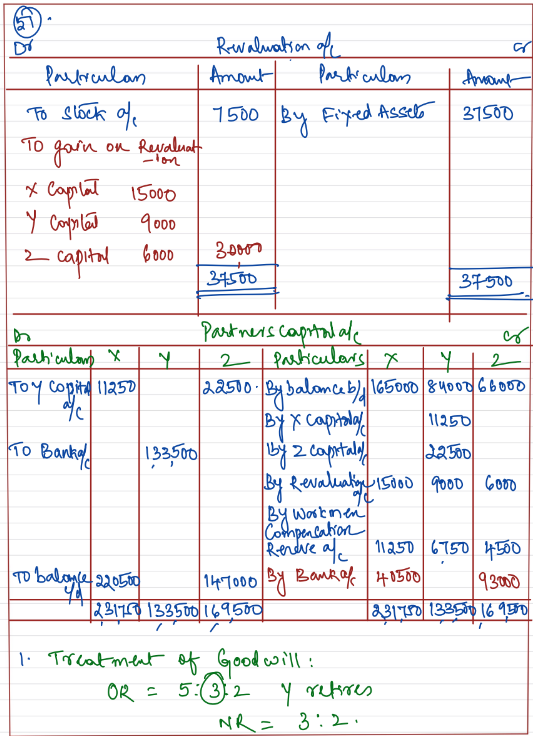 27.
Dr Revaluation a/c Cr
Particulars Amount Particulars Amount
To Stock a/c 7500 By Fixed Assets 37500
To gain on Revaluat
-ion
X Capital 15000
Y Capital 9000
Z capital 6000 30000
37500 37500
Dr Partners capital a/c Cr
Particulars X Y Z Particulars X Y Z
To Y Capital 11250 22500. By balance b/d 165000 84000 66000
a/c By X capital a/c 11250
To Bank a/c 133500 By Z capital a/c 22500
By Revaluation 15000 9000 6000
a/c
By Workmen
Compensation
Reserve a/c 11250 6750 4500
To balance 220500 147000 By Bank a/c 40500 93000
c/d
231750 133500 169500 231750 133500 169500
1. Treatment of Goodwill:
OR = 5:3:2 Y retires
NR = 3:2.